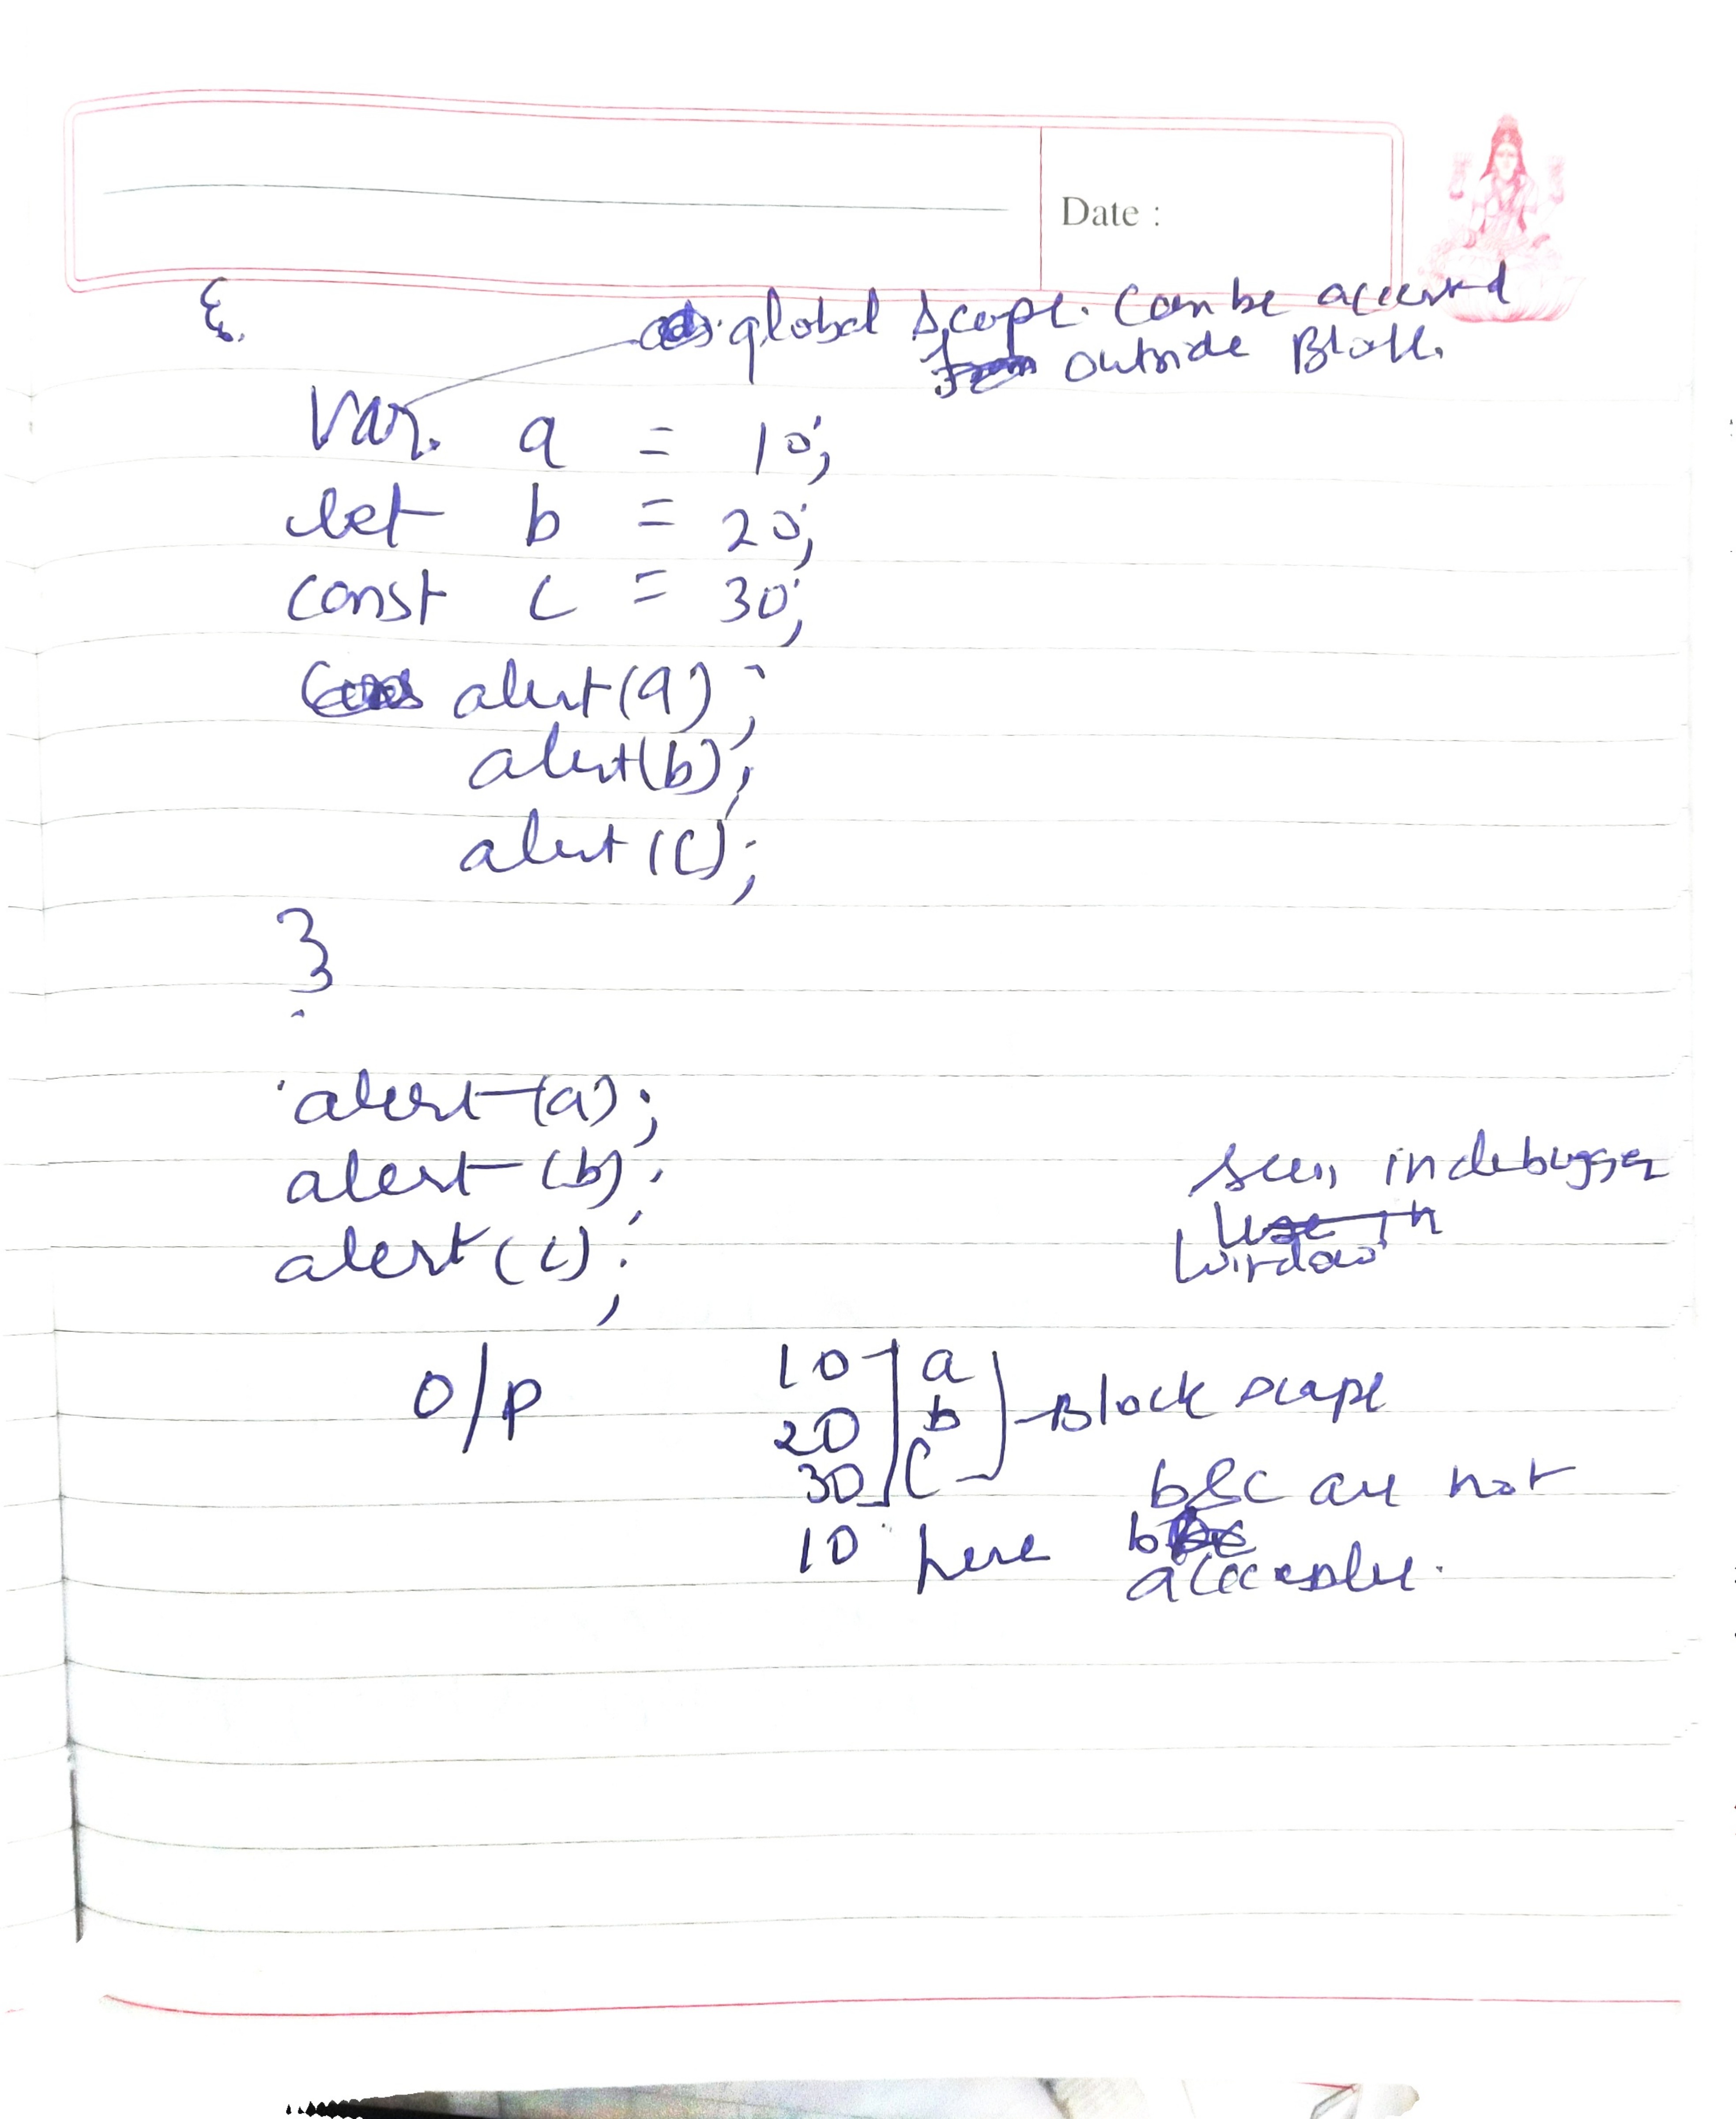 Date :
{
global scope. Can be accessed
outside Block.
Var. a = 10;
let b = 20;
const c = 30;
alert(a);
alert(b);
alert(c);
}
alert(a);
alert(b);
alert(c);
seen in debugger
window
O/P 10 a
20 b Block scope
30 c
b&c are not
10 here
accessible.